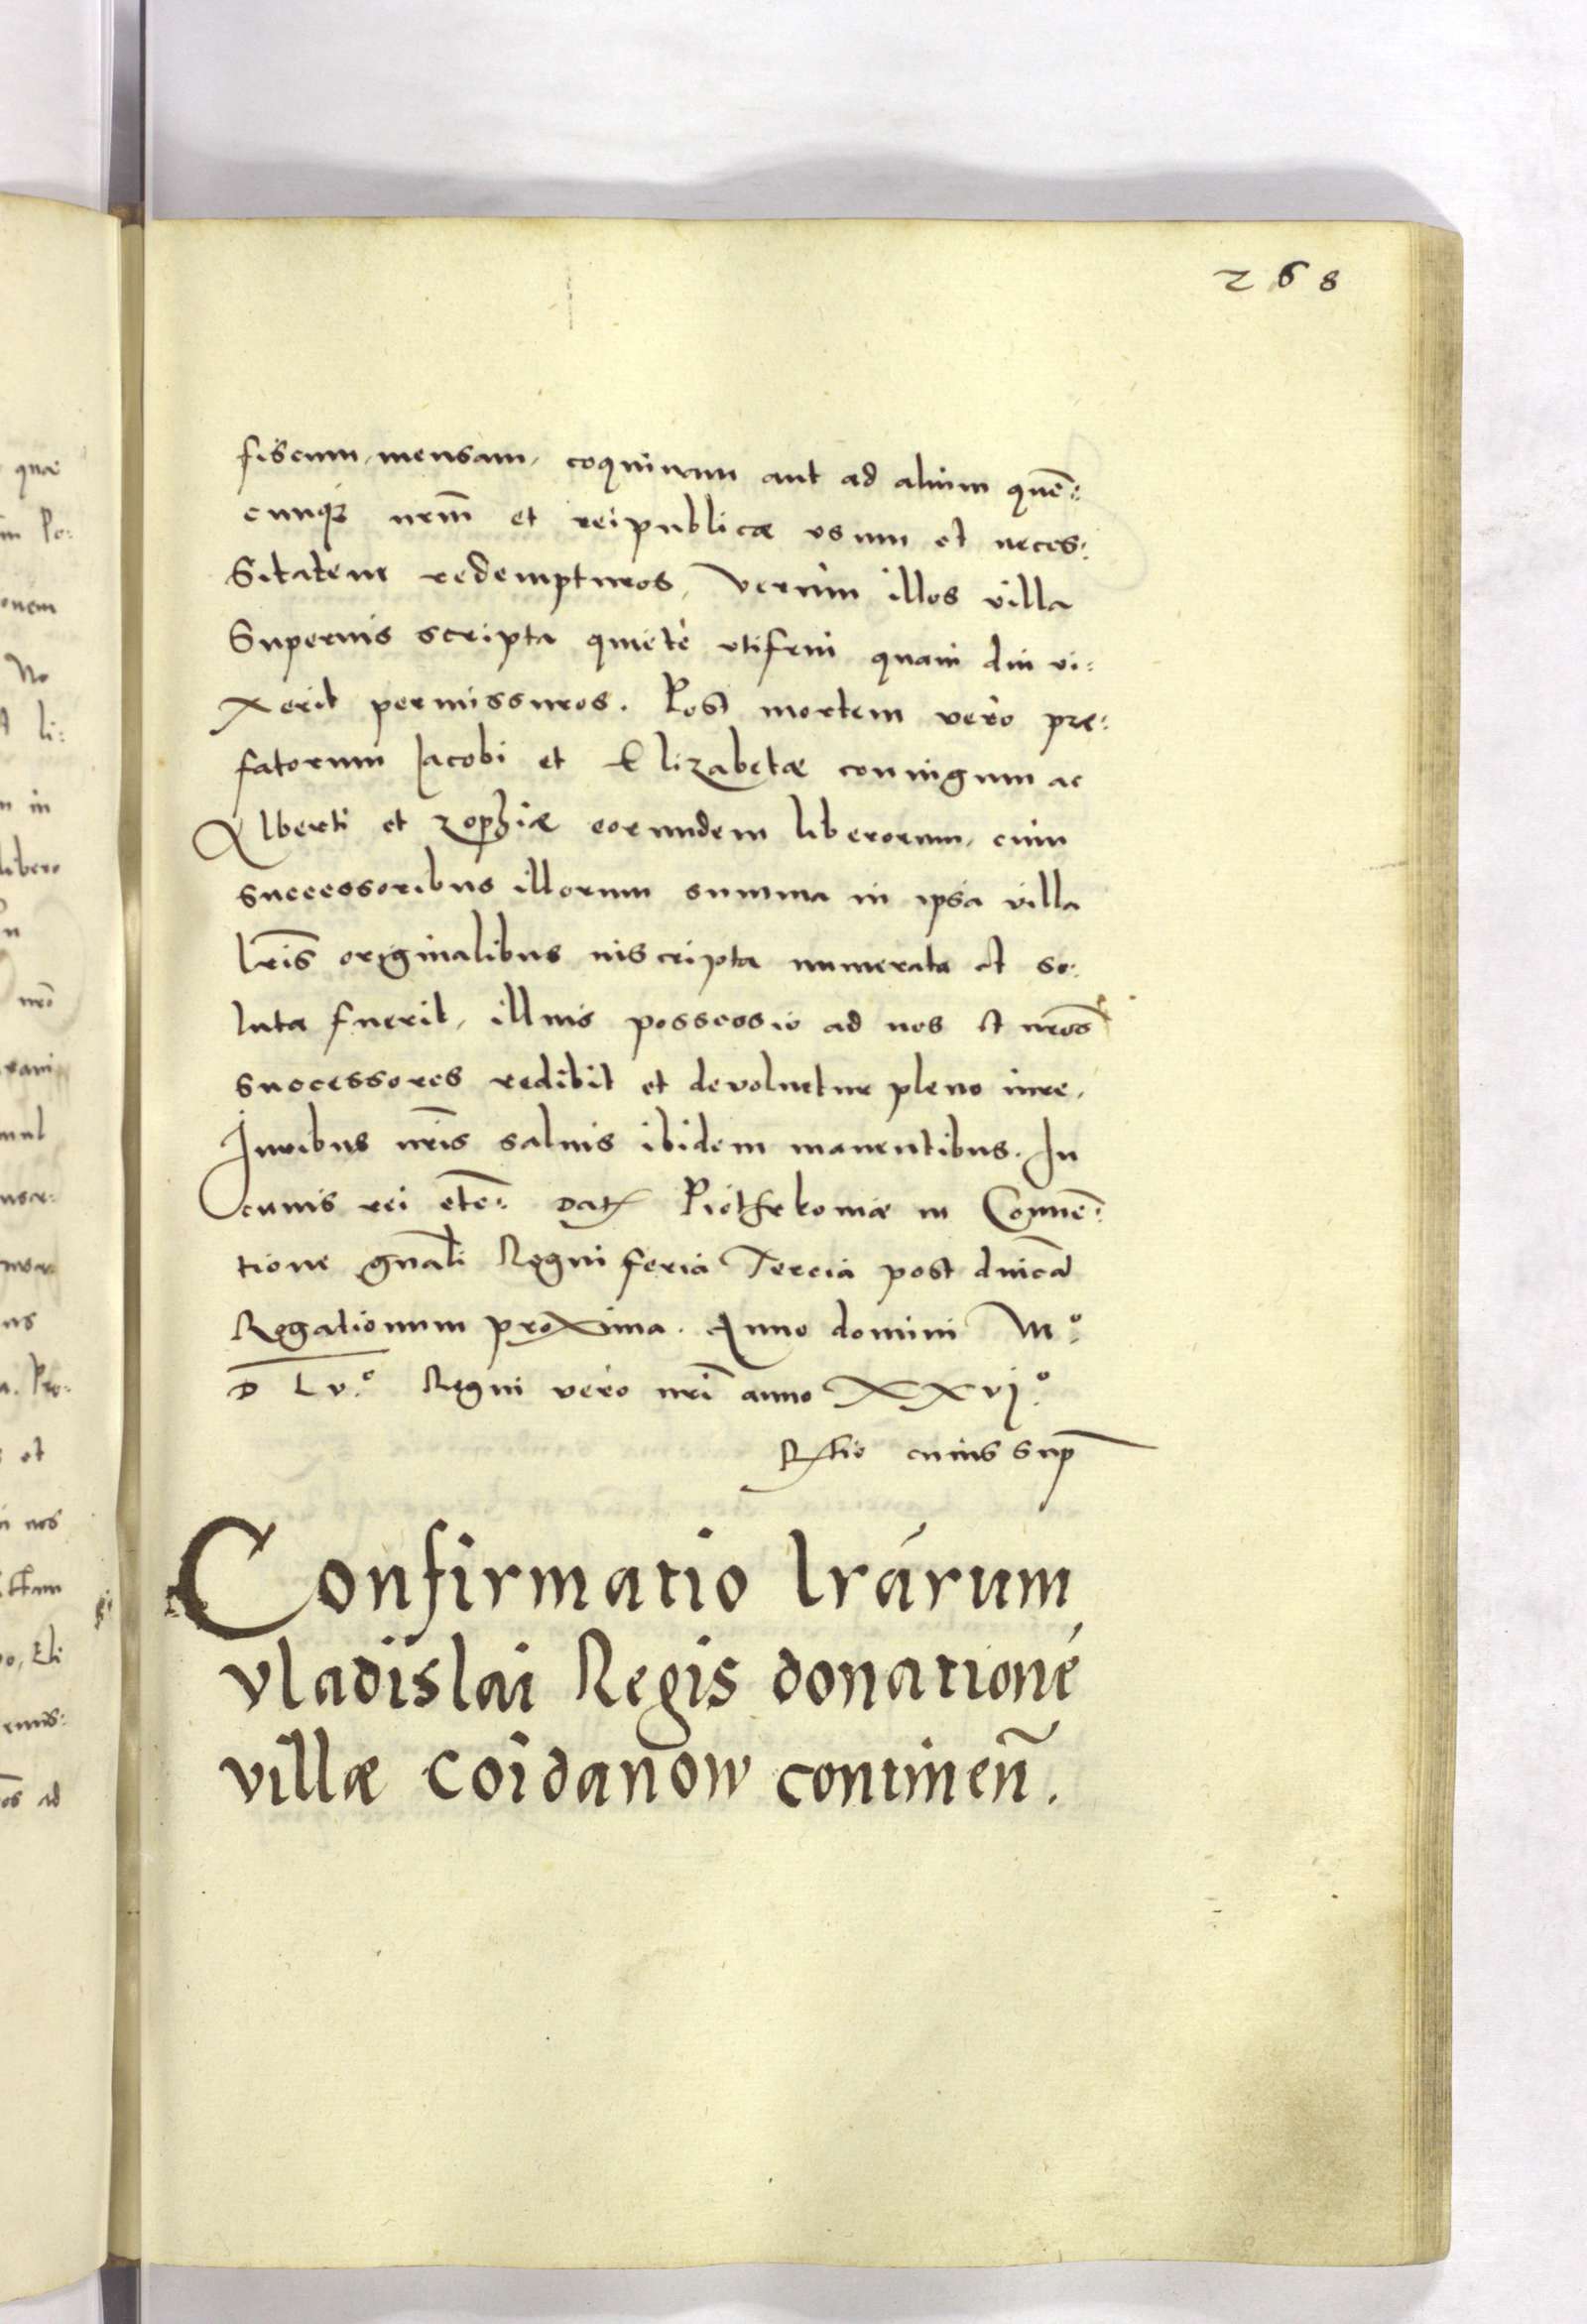 268
fiscum, mensam, coquinam aut ad alium quē:
cunqȝ nrm̄ et reipublicæ usum et neces:
sitatem redempturos, Verum illos villa
superius scripta quiete utifrui quam diu vi:
xerit permissuros. Post mortem vero præ:
fatorum Jacobi et Elizabetæ coniugum ac
Alberti et Zophiæ eorundem liberorum, cum
successoribus illorum summa in ipsa villa
lr̄is originalibus inscripta numerata et so:
luta fuerit, illius possessio ad nos et nr̄os
successores redibit et devoluetur pleno iure,
Juribus nr̄is saluis ibidem manentibus. In
cuius rei etc̄: Dat Piothrkoviæ in Conuē:
tione gn̄ali Regni feria Tercia post dnicā
Rogationum proxima. Anno domini Mº
D L vº. Regni vero nr̄i anno XXvjº.
Rtio cuius sup̄
Confirmatio lrārum
Vladislai Regis donationē
villæ Coidanow continen̄.